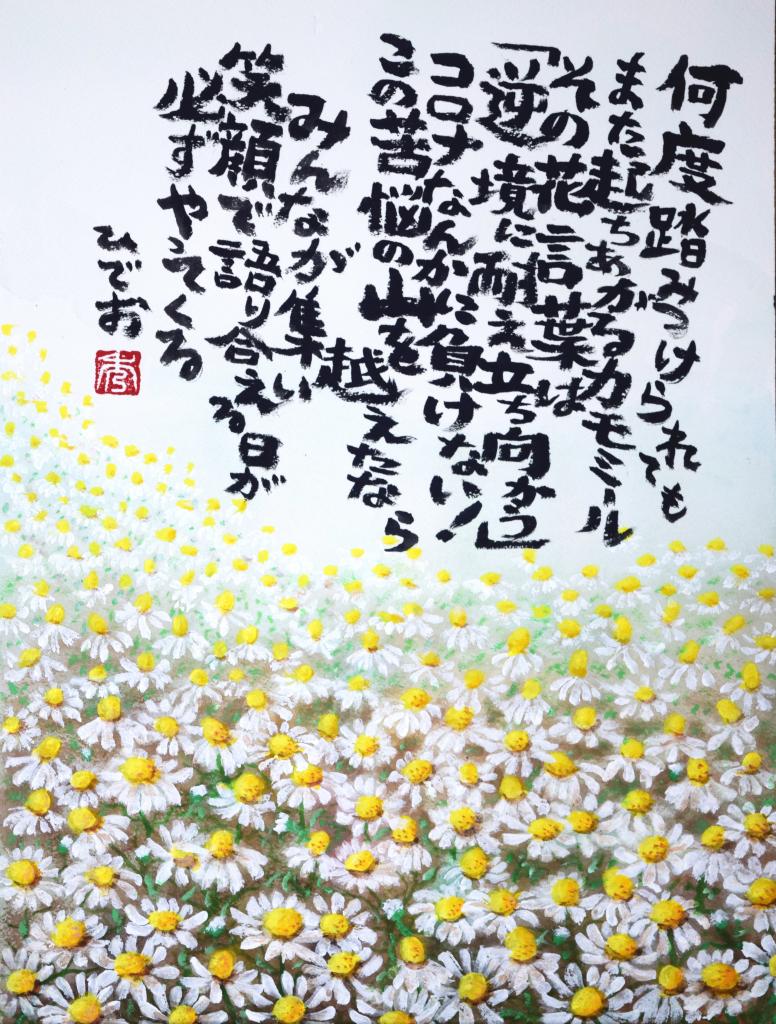 何度踏みつけられても
また起ちあがるカモミール
その花言葉は
「逆境に耐え立ち向かう」
コロナなんかに負けない!
この苦悩の山を
越えたなら
みんなが集い
笑顔で語り合える日が
必ずやってくる
ひでお
秀